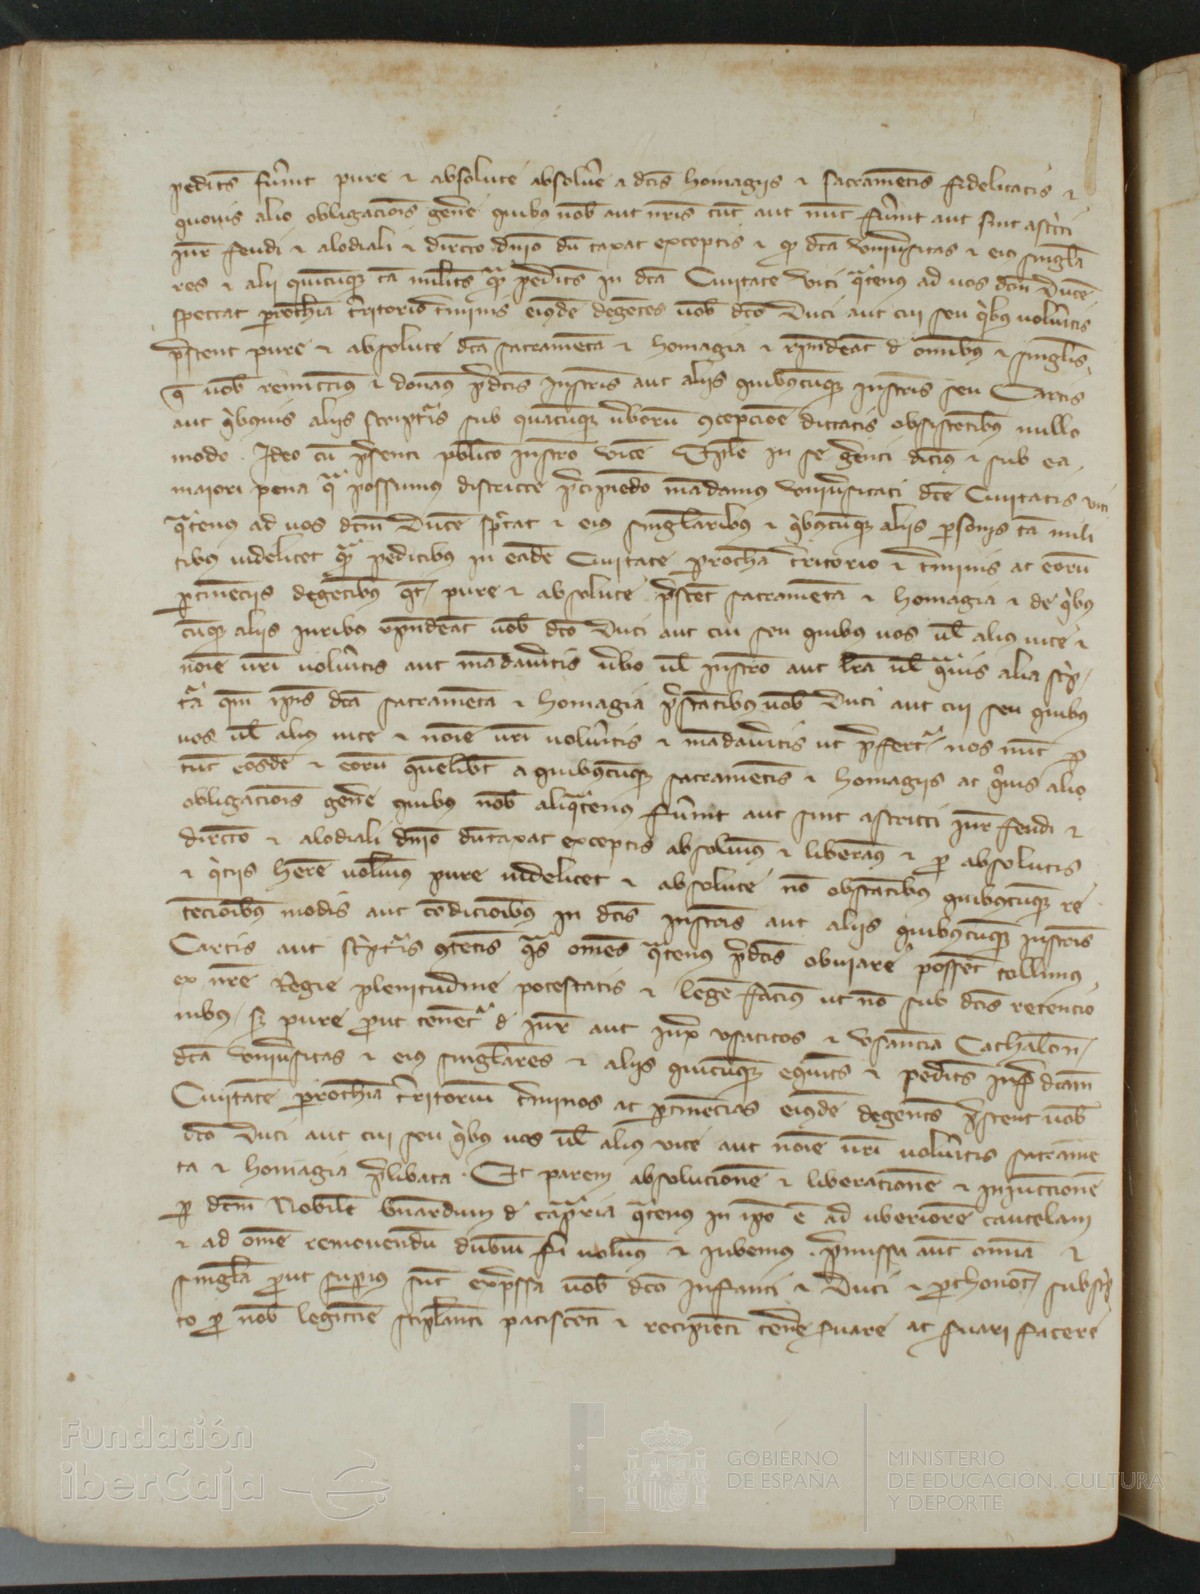 pedites fuerint pure et absolute absolvere a dictis homagiis et sacramentis fidelitatis et
quovis alio obligacionis genere quibus nobis aut nostris tunc aut nunc fuerint aut sint astricti
iure feudi et alodiali et directo dominio dum taxat exceptis et quod dicta universitas et eius singula
res et alii quicumque tam milites quam pedites in dicta Civitate Vici quatenus ad vos dictum Ducem
spectat parrochia territorio terminis eiusdem degentes vobis dicto Duci aut cui seu quibus volueritis
prestent pure et absolute dicta sacramenta et homagia et respondeant de omnibus et singulis
que vobis remittimus et donamus predictis instrumentis aut aliis quibuscumque instrumentis seu Cartis
aut quibusvis aliis scripturis sub quacumque verborum concepcione dictatis obsistentibus nullo
modo. Ideo cum presenti publico instrumento vicem Epistole in se gerenti dicimus et sub ea
maiori pena qua possumus districte precipiendo mandamus universitati dicte Civitatis Vici
quatenus ad vos dictum Ducem spectat et eius singularibus et quibuscumque aliis personis tam mili
tibus videlicet quam peditibus in eadem Civitate parrochia territorio et terminis ac eorum
pertinenciis degentibus quod pure et absolute prestent sacramenta et homagia et de quibus
cumque aliis iuribus respondeant vobis dicto Duci aut cui seu quibus vos vel alius vice et
nomine vestri volueritis aut mandaveritis verbo vel instrumento aut littera vel quavis alia scrip
tura quoniam ipsis dicta sacramenta et homagia prestantibus vobis Duci aut cui seu quibus
vos vel alius vice et nomine vestri volueritis et mandaveritis ut prefertur nos nunc pro
tunc eosdem et eorum quemlibet a quibuscumque sacramentis et homagiis ac quovis alio
obligacionis genere quibus nobis aliquatenus fuerint aut sint astricti iure feudi et
directo et alodiali dominio dumtaxat exceptis absolvimus et liberamus et pro absolutis
et quitiis habere volumus pure videlicet et absolute non obstantibus quibuscumque re
tencionibus modis aut condicionibus in dictis instrumentis aut aliis quibuscumque instrumentis
Cartis aut scripturis contentis quas omnes quatenus predictis obviare possent tollimus
ex nostre Regie plenitudine potestatis et legem facimus ut non sub dictis retencio
nibus, set pure prout tenentur de iure aut iuxta usaticos et usancia Cathalonie
dicta universitas et eius singulares et aliis quicumque equites et pedites infra dictam
Civitatem parrochiam territorium terminos ac pertinencias eiusdem degentes prestent vobis
dicto Duci aut cui seu quibus vos vel alius vice aut nomine vestri volueritis sacramen
ta et homagia prelibata. Et parem absolucionem et liberacionem et iniunccionem
per dictum Nobilem Bernardum de Capraria quatenus in ipso est ad uberiorem cautelam
et ad omne removendum dubium fieri volumus et iubemus. premissa autem omnia et
singula prout superius sunt expressa vobis dicto Infanti et Duci et prothonotario subscrip
to pro vobis legittime stipulanti paciscenti et recipienti tenere servare ac servari facere